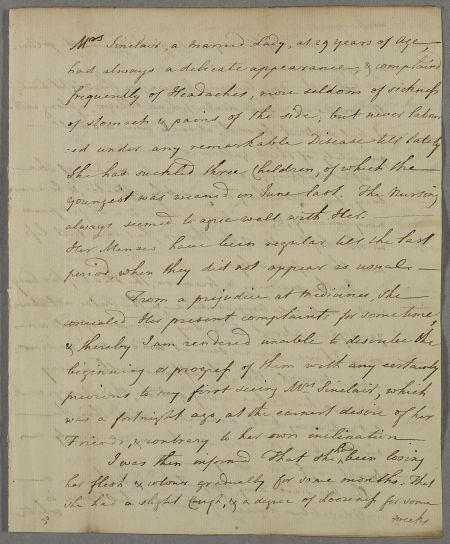 Mrs Sinclair, a married Lady, at 29 years of Age,
had always a delicate appearance, & complain'd
frequently of Headaches, more seldom of sickness
of stomach & pains of the side; but never labour
:ed under any remarkable Disease till lately
She has suckled three Children, of which the
youngest was weaned in June last. The Nursing
always seemed to agree well with Her.
Her Menses have been regular till the last
period, when they did not appear as usual. —
From a prejudice at medicines, she
concealed Her present complaints for some time,
& thereby I am rendered unable to describe the
beginning or progress of them with any certainty
previous to my first seeing Mrs Sinclair, which
was a fortnight ago, at the earnest desire of her
Friends, & contrary to her own inclination. —
I was then informed That She had been losing
her flesh & colour gradually for some months. That
she had a slight Cough, & a degree of Looseness for some
weeks